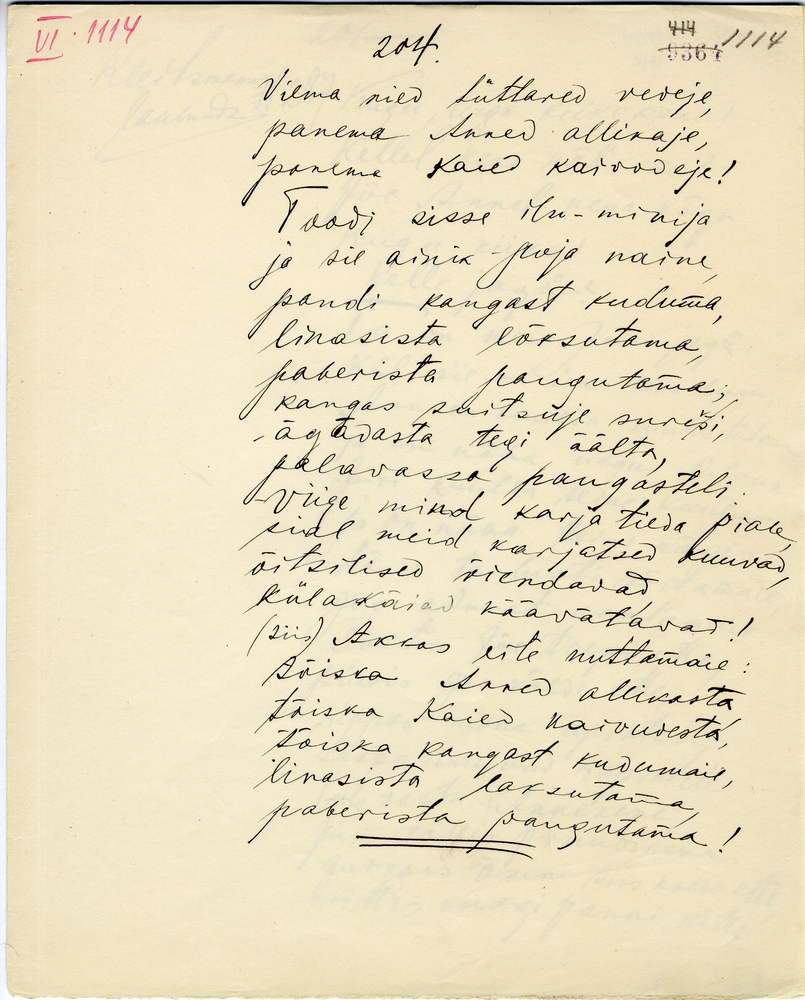 VI. 1114
414
9364 1114
204.
Viema nied tüttared vedeje,
panema Anned allikaje,
panema Kaied kaivodeje!
Toodi sisse ilu-minija
ja sie ainik-poja naine,
pandi kangast kuduma,
linasista lõksutama,
paberista paugutama;
kangas suitsuje
ägädasta tegi äälta,
palavassa paugasteli:
Viige mind karja tieda piale,
sial meid karjatsed kuuvad,
õitsilised riendavad,
külakäiad käävätävad!
(siis) Akkas eite nuttamaie:
tõiska Anned allikasta
tõiska Kaied kaivudesta,
tõiska kangast kudumaie,
linasista laksutama,
paberista paugutama!